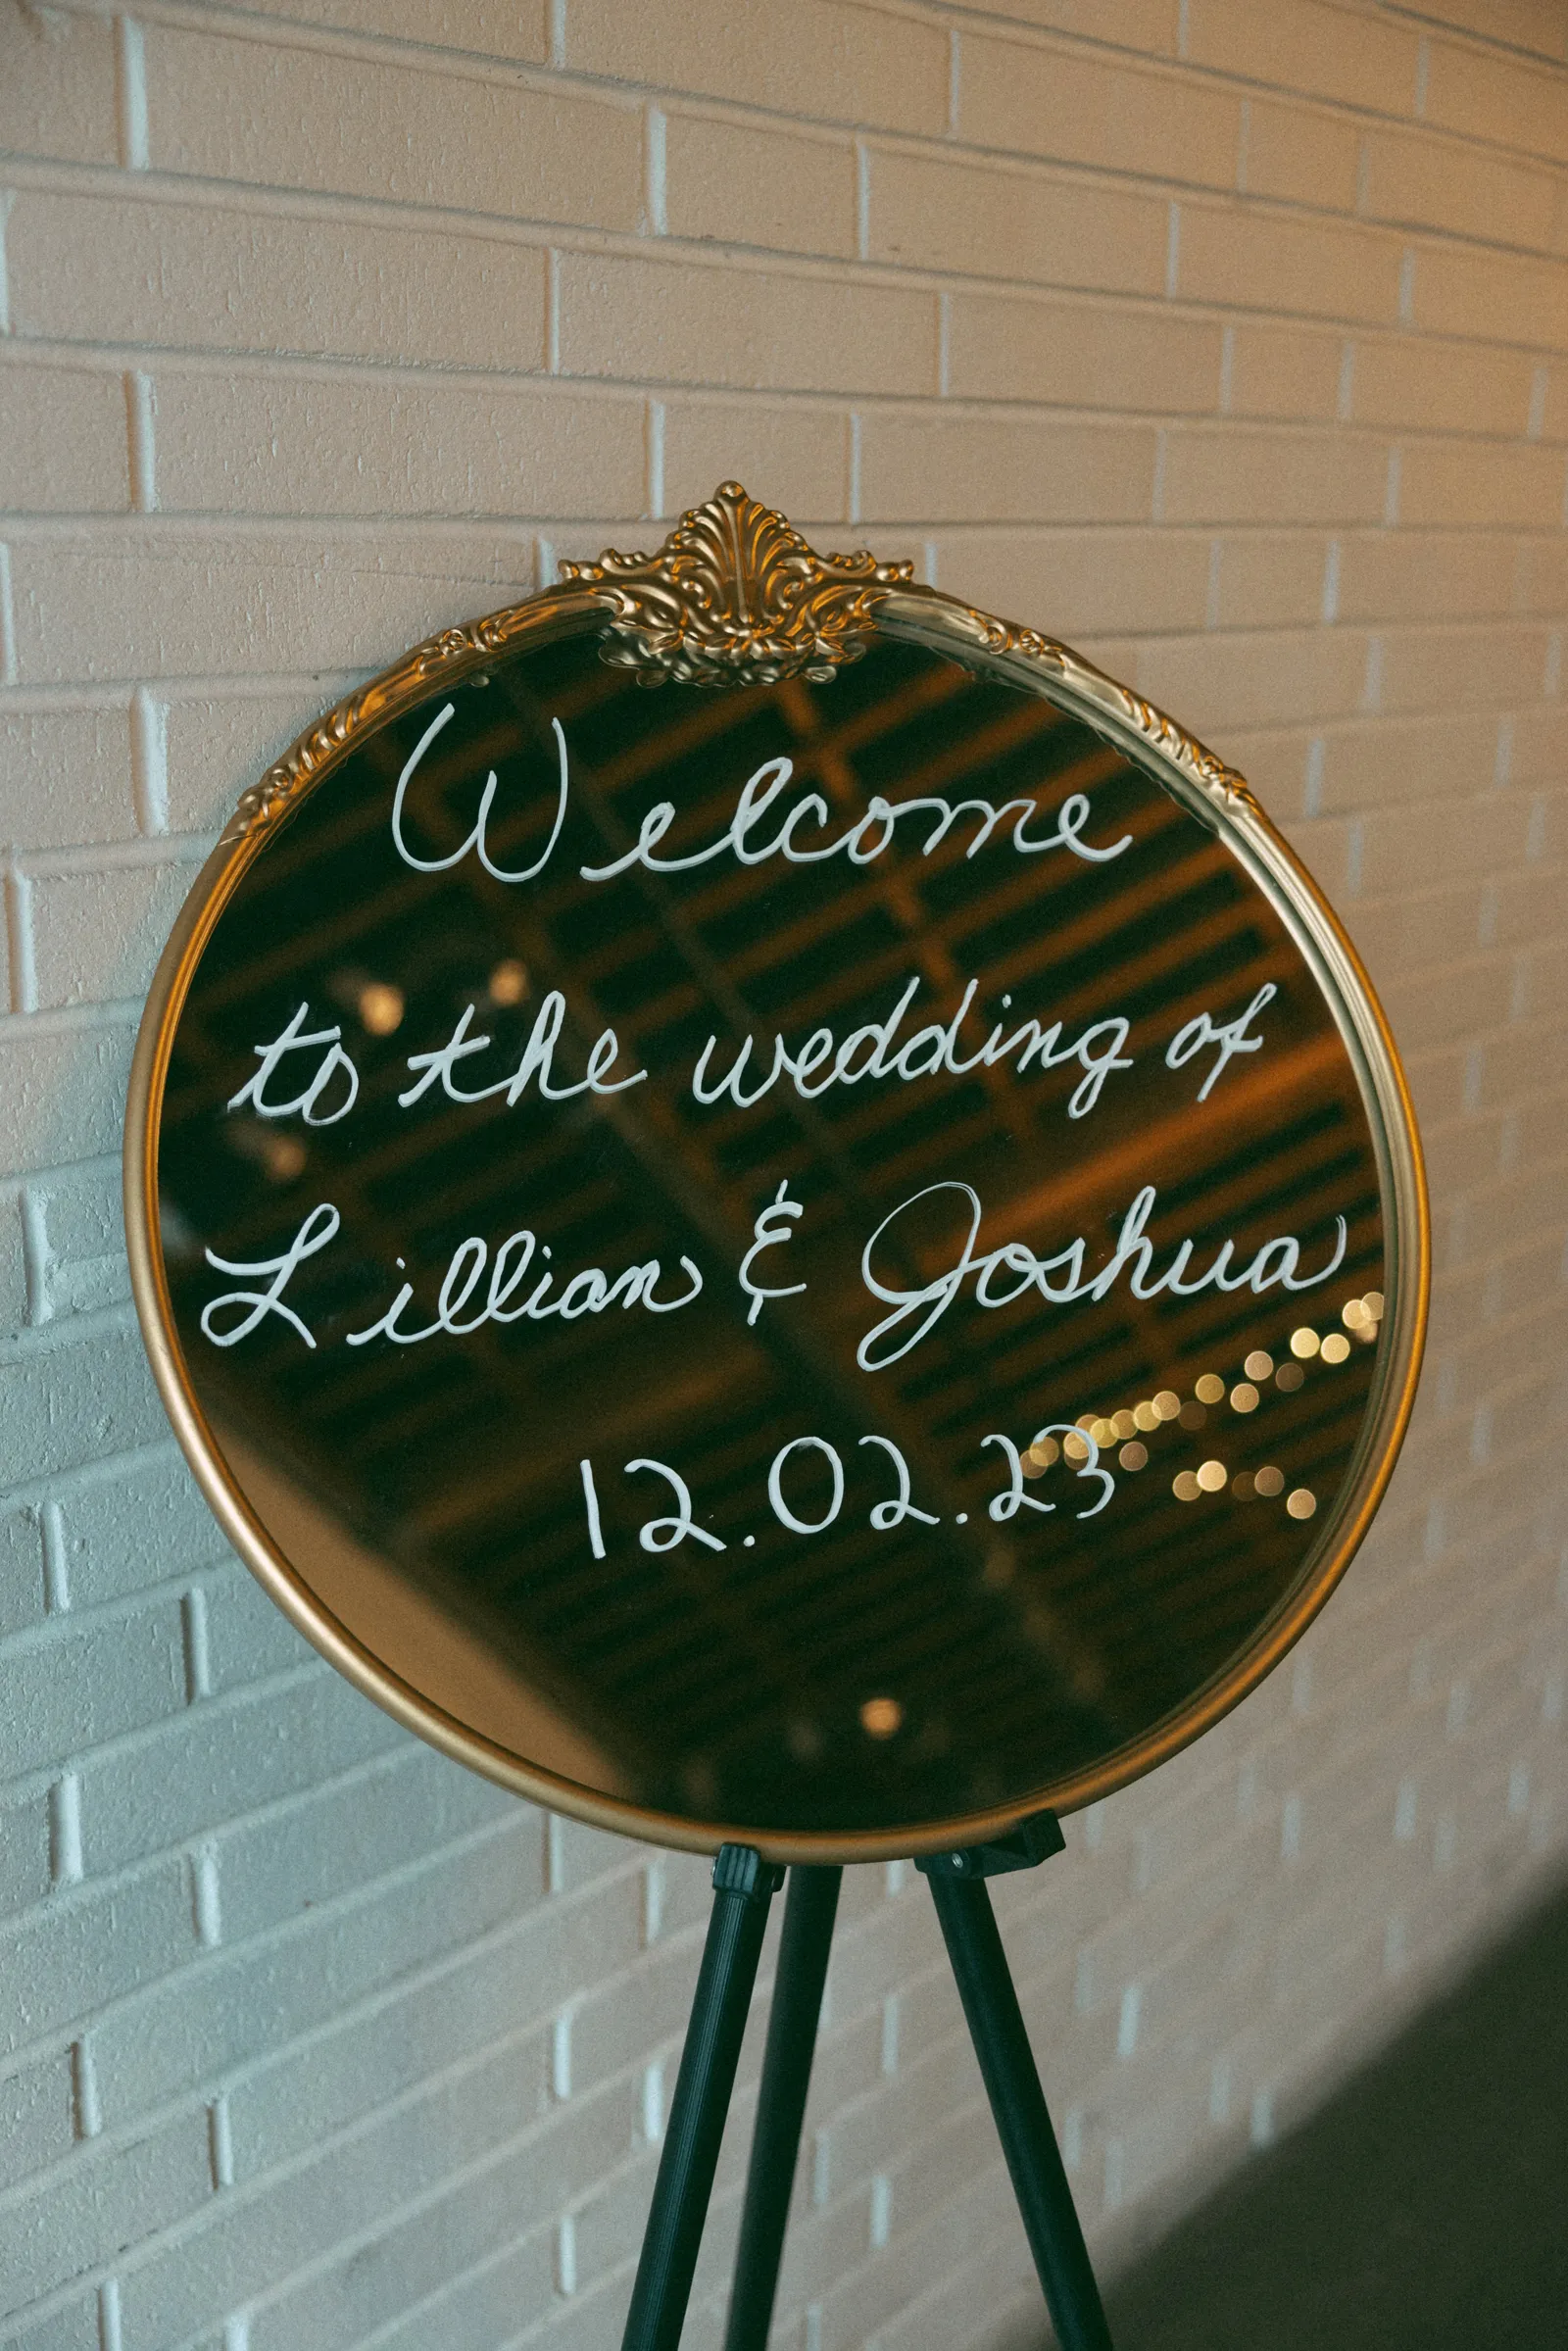 Welcome
to the wedding of
Lillian & Joshua
12.02.23